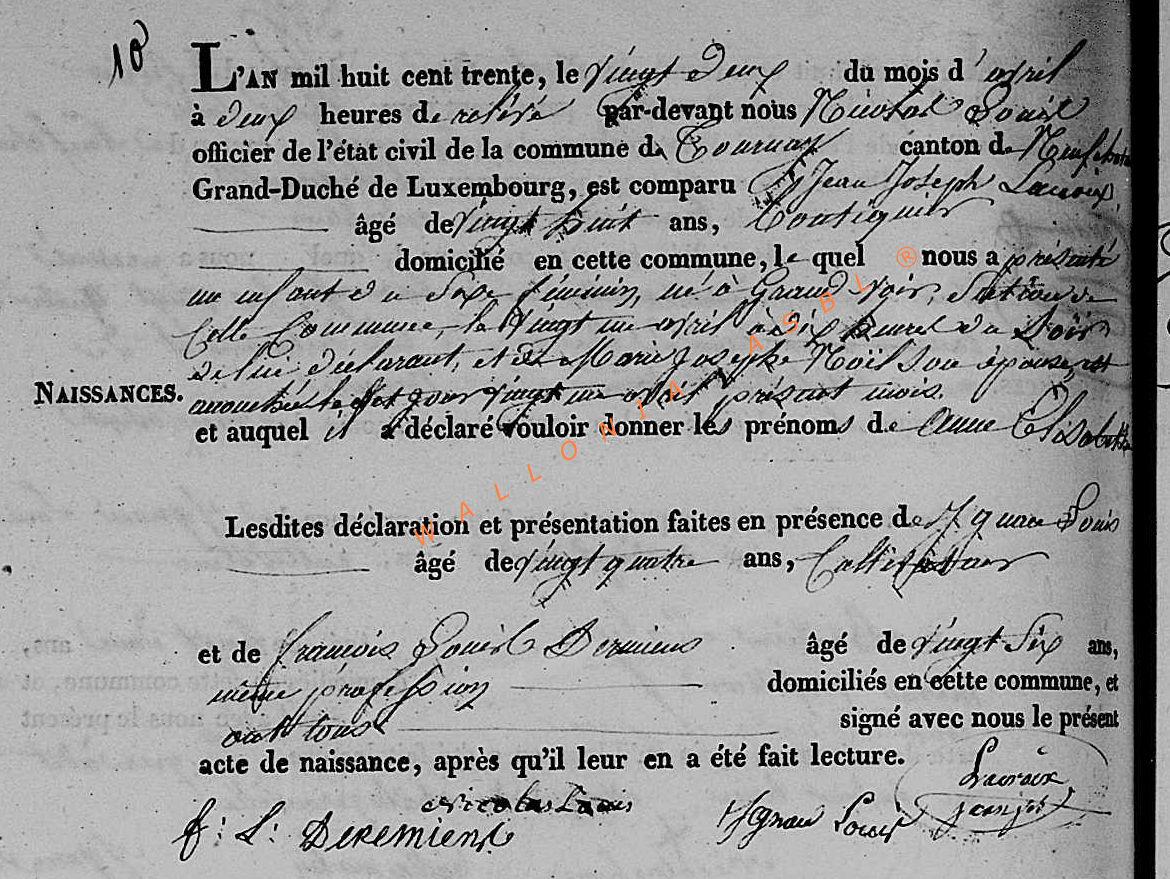 10
L'AN mil huit cent trente, le vingt deux du mois d'avril
à deux heures de relevé par-devant nous Nicolas Louis
officier de l'état civil de la commune de Tournay canton de Neufchateau
Grand-Duché de Luxembourg, est comparu Jean Joseph Lacroix,
âgé de vingt huit ans,
domicilié en cette commune, le quel nous a présenté
un enfant du sexe féminin, né à Grand Voir, Section de
cette Commune, le vingt un avril à six heures du Soir
de lui déclarant, et de Marie Joseph Noïl son épouse, et
le jour vingt un avril présent mois.
NAISSANCES.
et auquel il a déclaré vouloir donner les prénoms de Anne Elisabeth
Lesdites déclaration et présentation faites en présence de Ignace Louis
âgé de vingt quatre ans, Cultivateur
et de François Louis Deremiens âgé de vingt Six ans,
même profession domiciliés en cette commune, et
ont tous signé avec nous le présent
acte de naissance, après qu'il leur en a été fait lecture.
Lacroix
Nicolas Louis Ignace Louis jean jos
f: L: DEREMIENS
WALLONIA ASBL ®